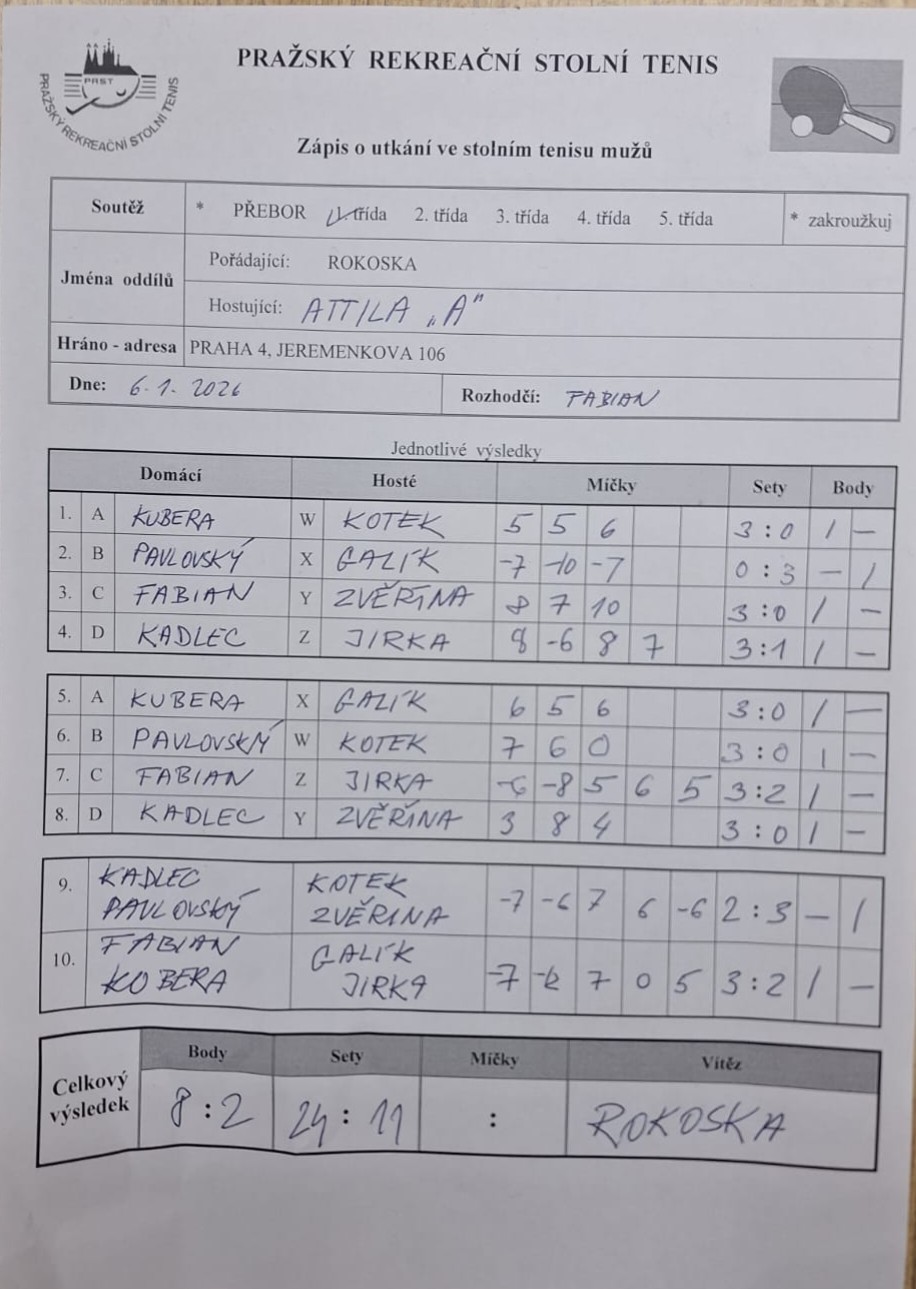 PRAŽSKÝ REKREAČNÍ STOLNÍ TENIS
PRST
PRAŽSKÝ REKREAČNÍ STOLNÍ TENIS
Zápis o utkání ve stolním tenisu mužů
Soutěž * PŘEBOR 1. třída 2. třída 3. třída 4. třída 5. třída * zakroužkuj
Jména oddílů
Pořádající: ROKOSKA
Hostující: ATTILA „A"
Hráno - adresa PRAHA 4, JEREMENKOVA 106
Dne: 6.1. 2026 Rozhodčí: FABIAN
Jednotlivé výsledky
Domácí Hosté Míčky Sety Body
1. A KUBERA W KOTEK 5 5 6 3 : 0 1 –
2. B PAVLOVSKÝ X GALÍK -7 -10 -7 0 : 3 – 1
3. C FABIAN Y ZVĚŘINA 8 7 10 3 : 0 1 –
4. D KADLEC Z JIRKA 8 -6 8 7 3 : 1 1 –
5. A KUBERA X GALÍK 6 5 6 3 : 0 1 –
6. B PAVLOVSKÝ W KOTEK 7 6 0 3 : 0 1 –
7. C FABIAN Z JIRKA -6 -8 5 6 5 3 : 2 1 –
8. D KADLEC Y ZVĚŘINA 3 8 4 3 : 0 1 –
9. KADLEC KOTEK
PAVLOVSKÝ ZVĚŘINA -7 -6 7 6 -6 2 : 3 – 1
10. FABIAN GALÍK
KOBERA JIRKA -7 7 0 5 3 : 2 1 –
Celkový výsledek
Body Sety Míčky Vítěz
8 : 2 24 : 11 : ROKOSKA